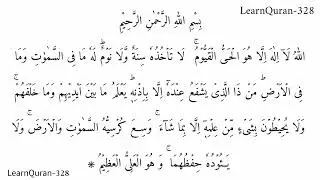 LearnQuran-328
بِسْمِ اللهِ الرَّحْمٰنِ الرَّحِيْمِ
اَللهُ لَآ اِلٰهَ اِلَّا هُوَ الْحَيُّ الْقَيُّوْمُ ۚ لَا تَاْخُذُهٗ سِنَةٌ وَّلَا نَوْمٌ ؕ لَهٗ مَا فِى السَّمٰوٰتِ وَمَا
فِى الْاَرْضِ ؕ مَنْ ذَا الَّذِىْ يَشْفَعُ عِنْدَهٗٓ اِلَّا بِاِذْنِهٖ ؕ يَعْلَمُ مَا بَيْنَ اَيْدِيْهِمْ وَمَا خَلْفَهُمْ ۚ
وَلَا يُحِيْطُوْنَ بِشَىْءٍ مِّنْ عِلْمِهٖٓ اِلَّا بِمَا شَآءَ ۚ وَسِعَ كُرْسِيُّهُ السَّمٰوٰتِ وَالْاَرْضَ ۚ وَلَا
يَــُٔوْدُهٗ حِفْظُهُمَا ۚ وَ هُوَ الْعَلِىُّ الْعَظِيْمُ *
LearnQuran-328